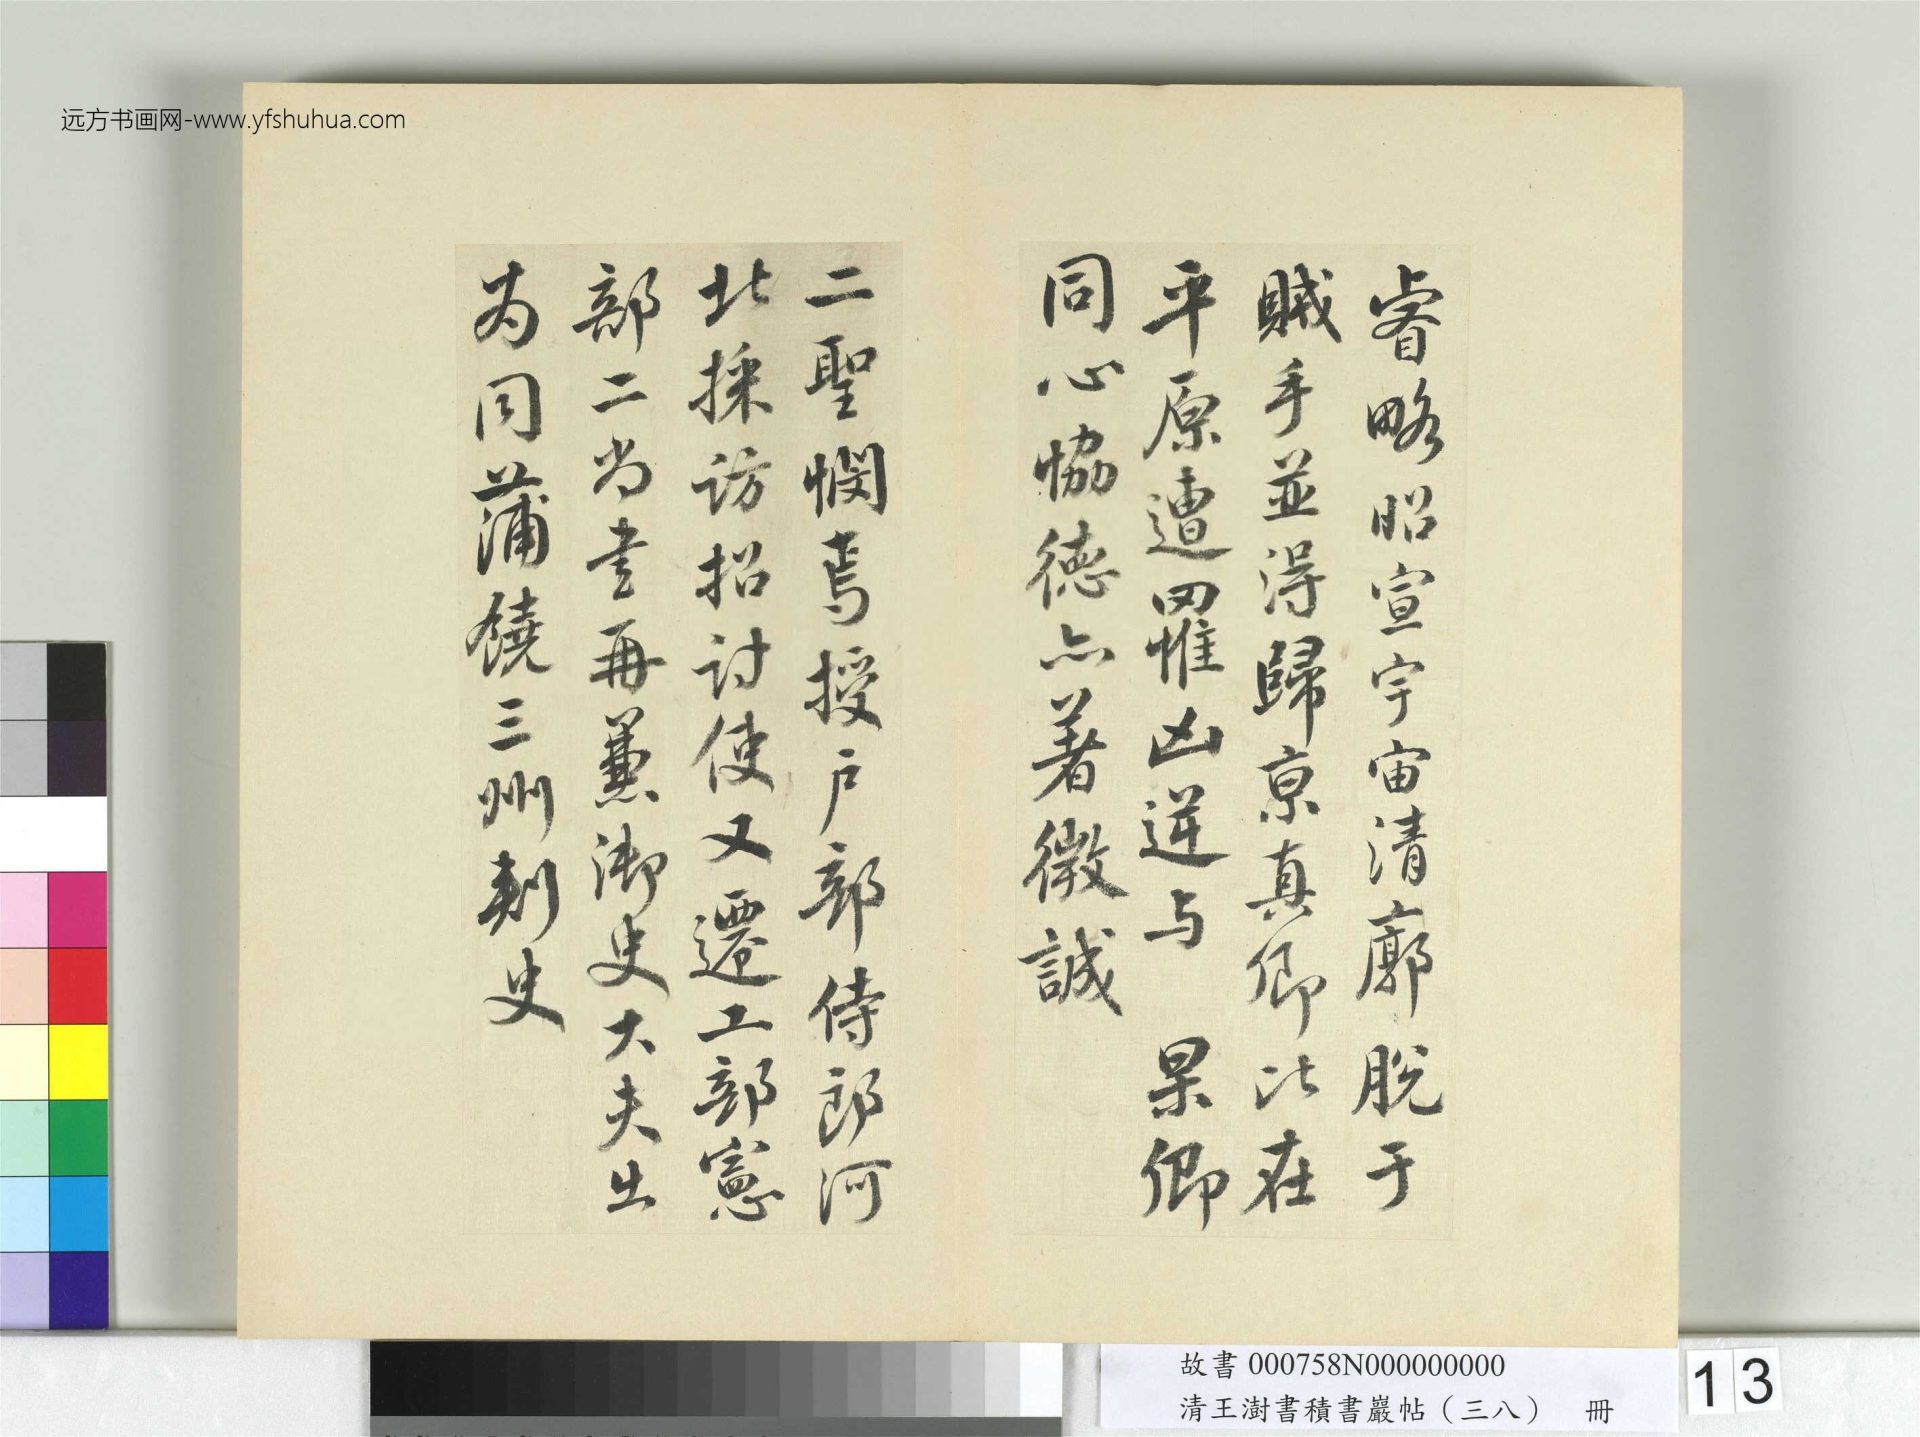 远方书画网-www.yfshuhua.com
睿略昭宣宇宙清廓脫于
賊手並得歸京真卿比在
平原遭罹凶逆与 杲卿
同心協德亦著微誠
二聖憫焉授戶部侍郎河
北採訪招討使又遷工部憲
部二尚書再兼御史大夫出
为同蒲饒三州刺史
故書 000758N000000000
清王澍書積書巖帖（三八） 冊
13